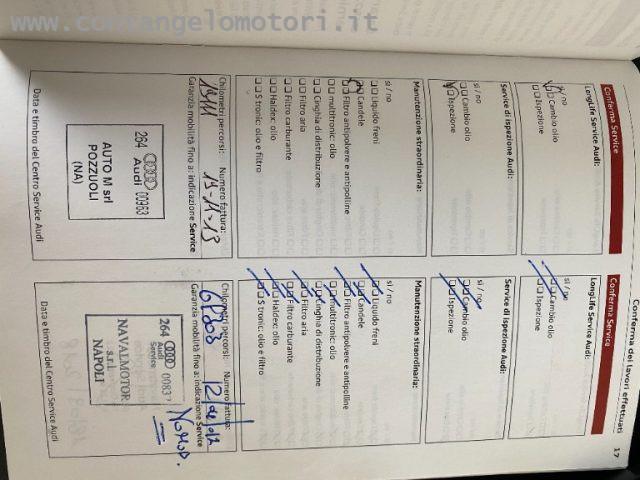 www.contangelomotori.it
Conferma dei lavori effettuati
17
Conferma Service
LongLife Service Audi:
sì / no
Cambio olio
Ispezione
Service di ispezione Audi:
sì / no
Cambio olio
Ispezione
Manutenzione straordinaria:
sì / no
Liquido freni
Candele
Filtro antipolvere e antipolline
multitronic: olio
Cinghia di distribuzione
Filtro aria
Filtro carburante
Haldex: olio
S tronic: olio e filtro
Chilometri percorsi: Numero fattura:
19-11-13
Garanzia mobilità fino a: indicazione Service
264 Audi 00963
AUTO M srl
POZZUOLI
(NA)
Data e timbro del Centro Service Audi
Conferma Service
LongLife Service Audi:
sì / no
Cambio olio
Ispezione
Service di ispezione Audi:
sì / no
Cambio olio
Ispezione
Manutenzione straordinaria:
sì / no
Liquido freni
Candele
Filtro antipolvere e antipolline
multitronic: olio
Cinghia di distribuzione
Filtro aria
Filtro carburante
Haldex: olio
S tronic: olio e filtro
Chilometri percorsi: Numero fattura:
Garanzia mobilità fino a: indicazione Service
264 Audi 00837
Service
NAVALMOTOR
s.r.l.
NAPOLI
Data e timbro del Centro Service Audi